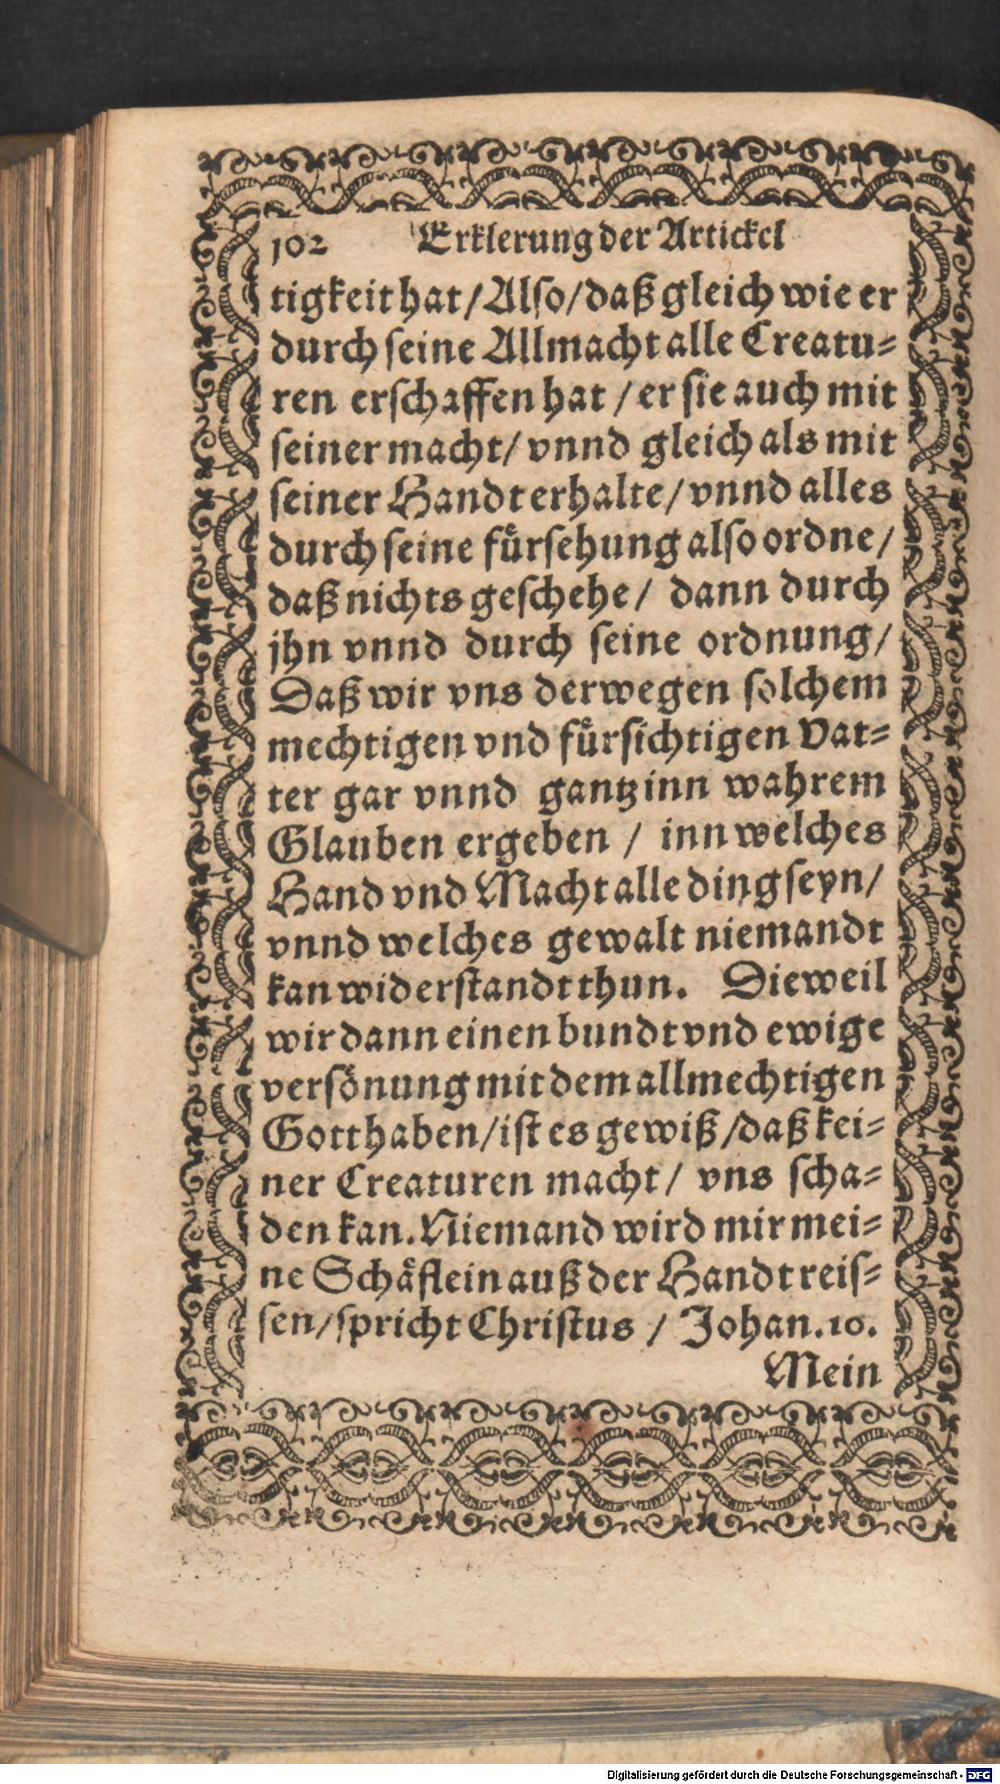 102 Erklerung der Artickel
tigkeit hat / Also / daß gleich wie er
durch seine Allmacht alle Creatu⸗
ren erschaffen hat / er sie auch mit
seiner macht / vnnd gleich als mit
seiner Handt erhalte / vnnd alles
durch seine fuͤrsehung also ordne /
daß nichts geschehe / dann durch
jhn vnnd durch seine ordnung /
Daß wir vns derwegen solchem
mechtigen vnd fuͤrsichtigen Vat⸗
ter gar vnnd gantz inn wahrem
Glauben ergeben / inn welches
Hand vnd Macht alle ding seyn /
vnnd welches gewalt niemandt
kan widerstandt thun. Dieweil
wir dann einen bundt vnd ewige
versönung mit dem allmechtigen
Gott haben / ist es gewiß / daß kei⸗
ner Creaturen macht / vns scha⸗
den kan. Niemand wird mir mei⸗
ne Schäflein auß der Handt reis⸗
sen / spricht Christus / Johan. 10.
Mein
Digitalisierung gefördert durch die Deutsche Forschungsgemeinschaft - DFG